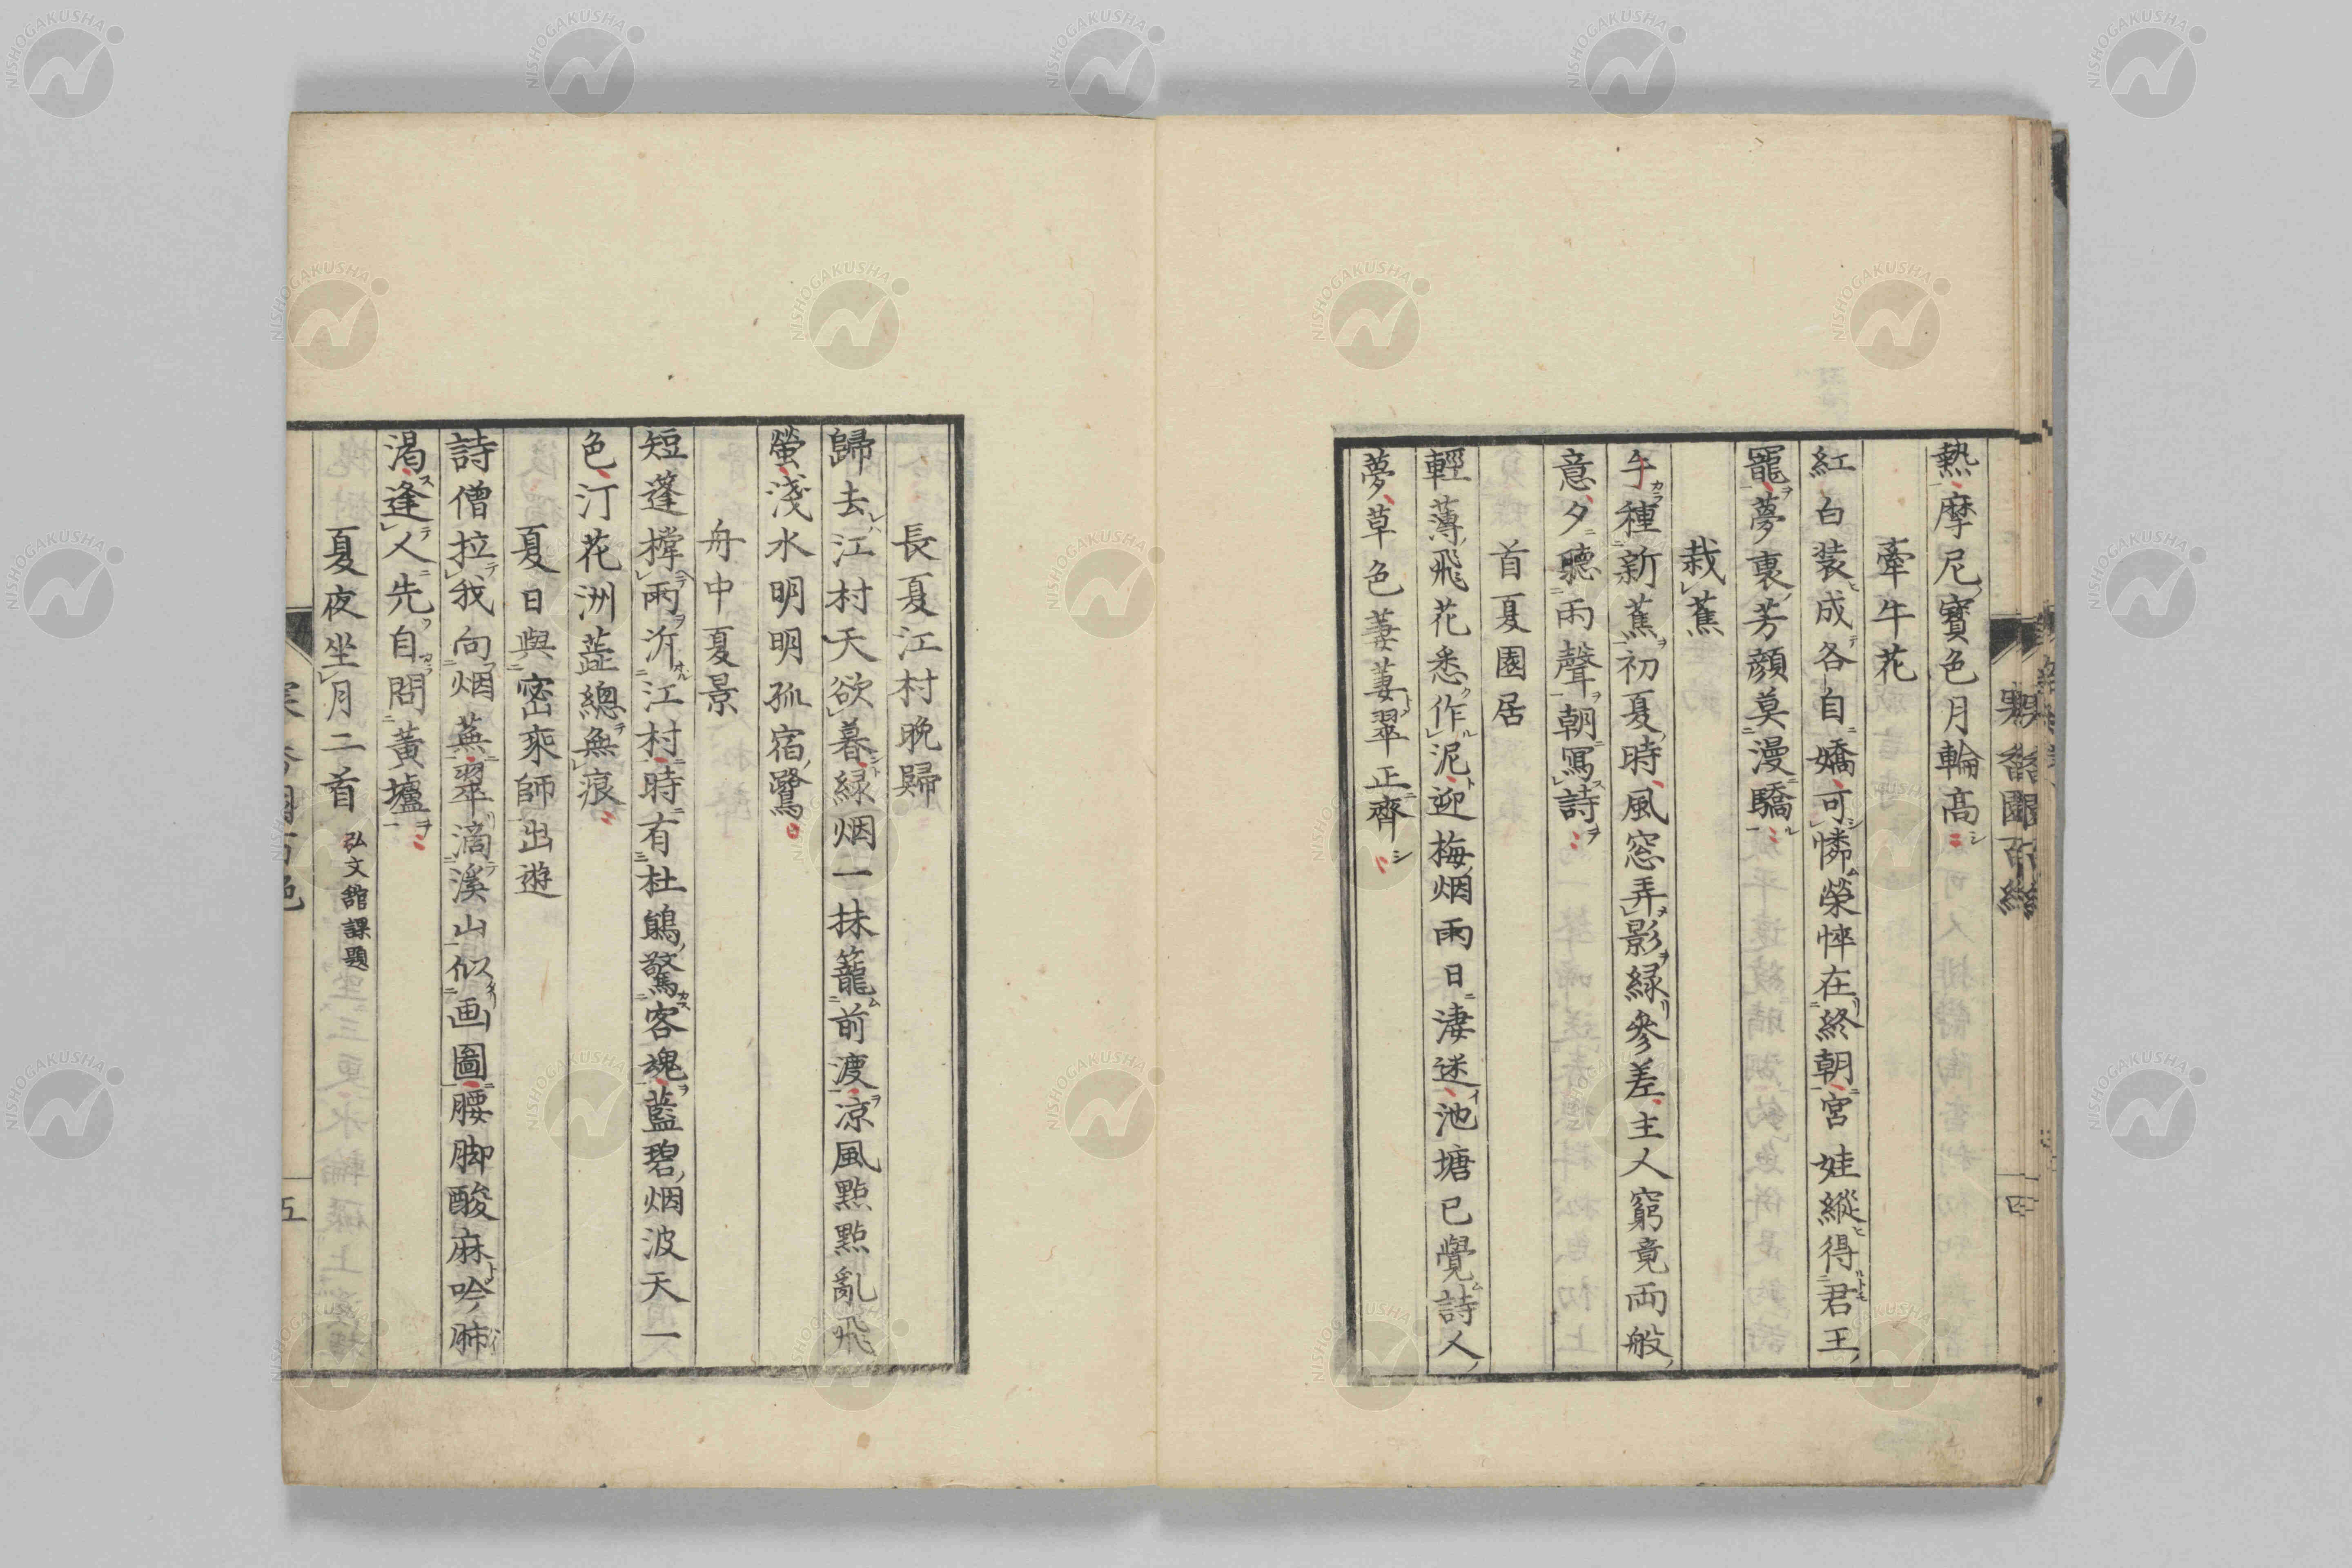 熱摩尼寶色月輪高
牽牛花
紅白装成各自嬌可憐榮悴在終朝宮娃縱得君王
寵夢裏芳顔莫漫驕
栽蕉
手種新蕉初夏時風窓弄影緑參差主人窮竟両般
意夕聽雨聲朝寫詩
首夏園居
輕薄飛花悉作泥迎梅烟雨日凄迷池塘已覺詩人
夢草色萋萋翠正齊
長夏江村晩歸
歸去江村天欲暮緑烟一抹籠前渡凉風點點亂飛
螢淺水明明孤宿鷺
舟中夏景
短蓬撑雨泝江村時有杜鵑驚客魂藍碧烟波天一
色汀花洲蕋總無痕
夏日與密乘師出遊
詩僧拉我向烟蕪翠滴溪山似画圖腰脚酸麻吟肺
渇逢人先自問黃壚
夏夜坐月二首 弘文館課題
五
NISHOGAKUSHA